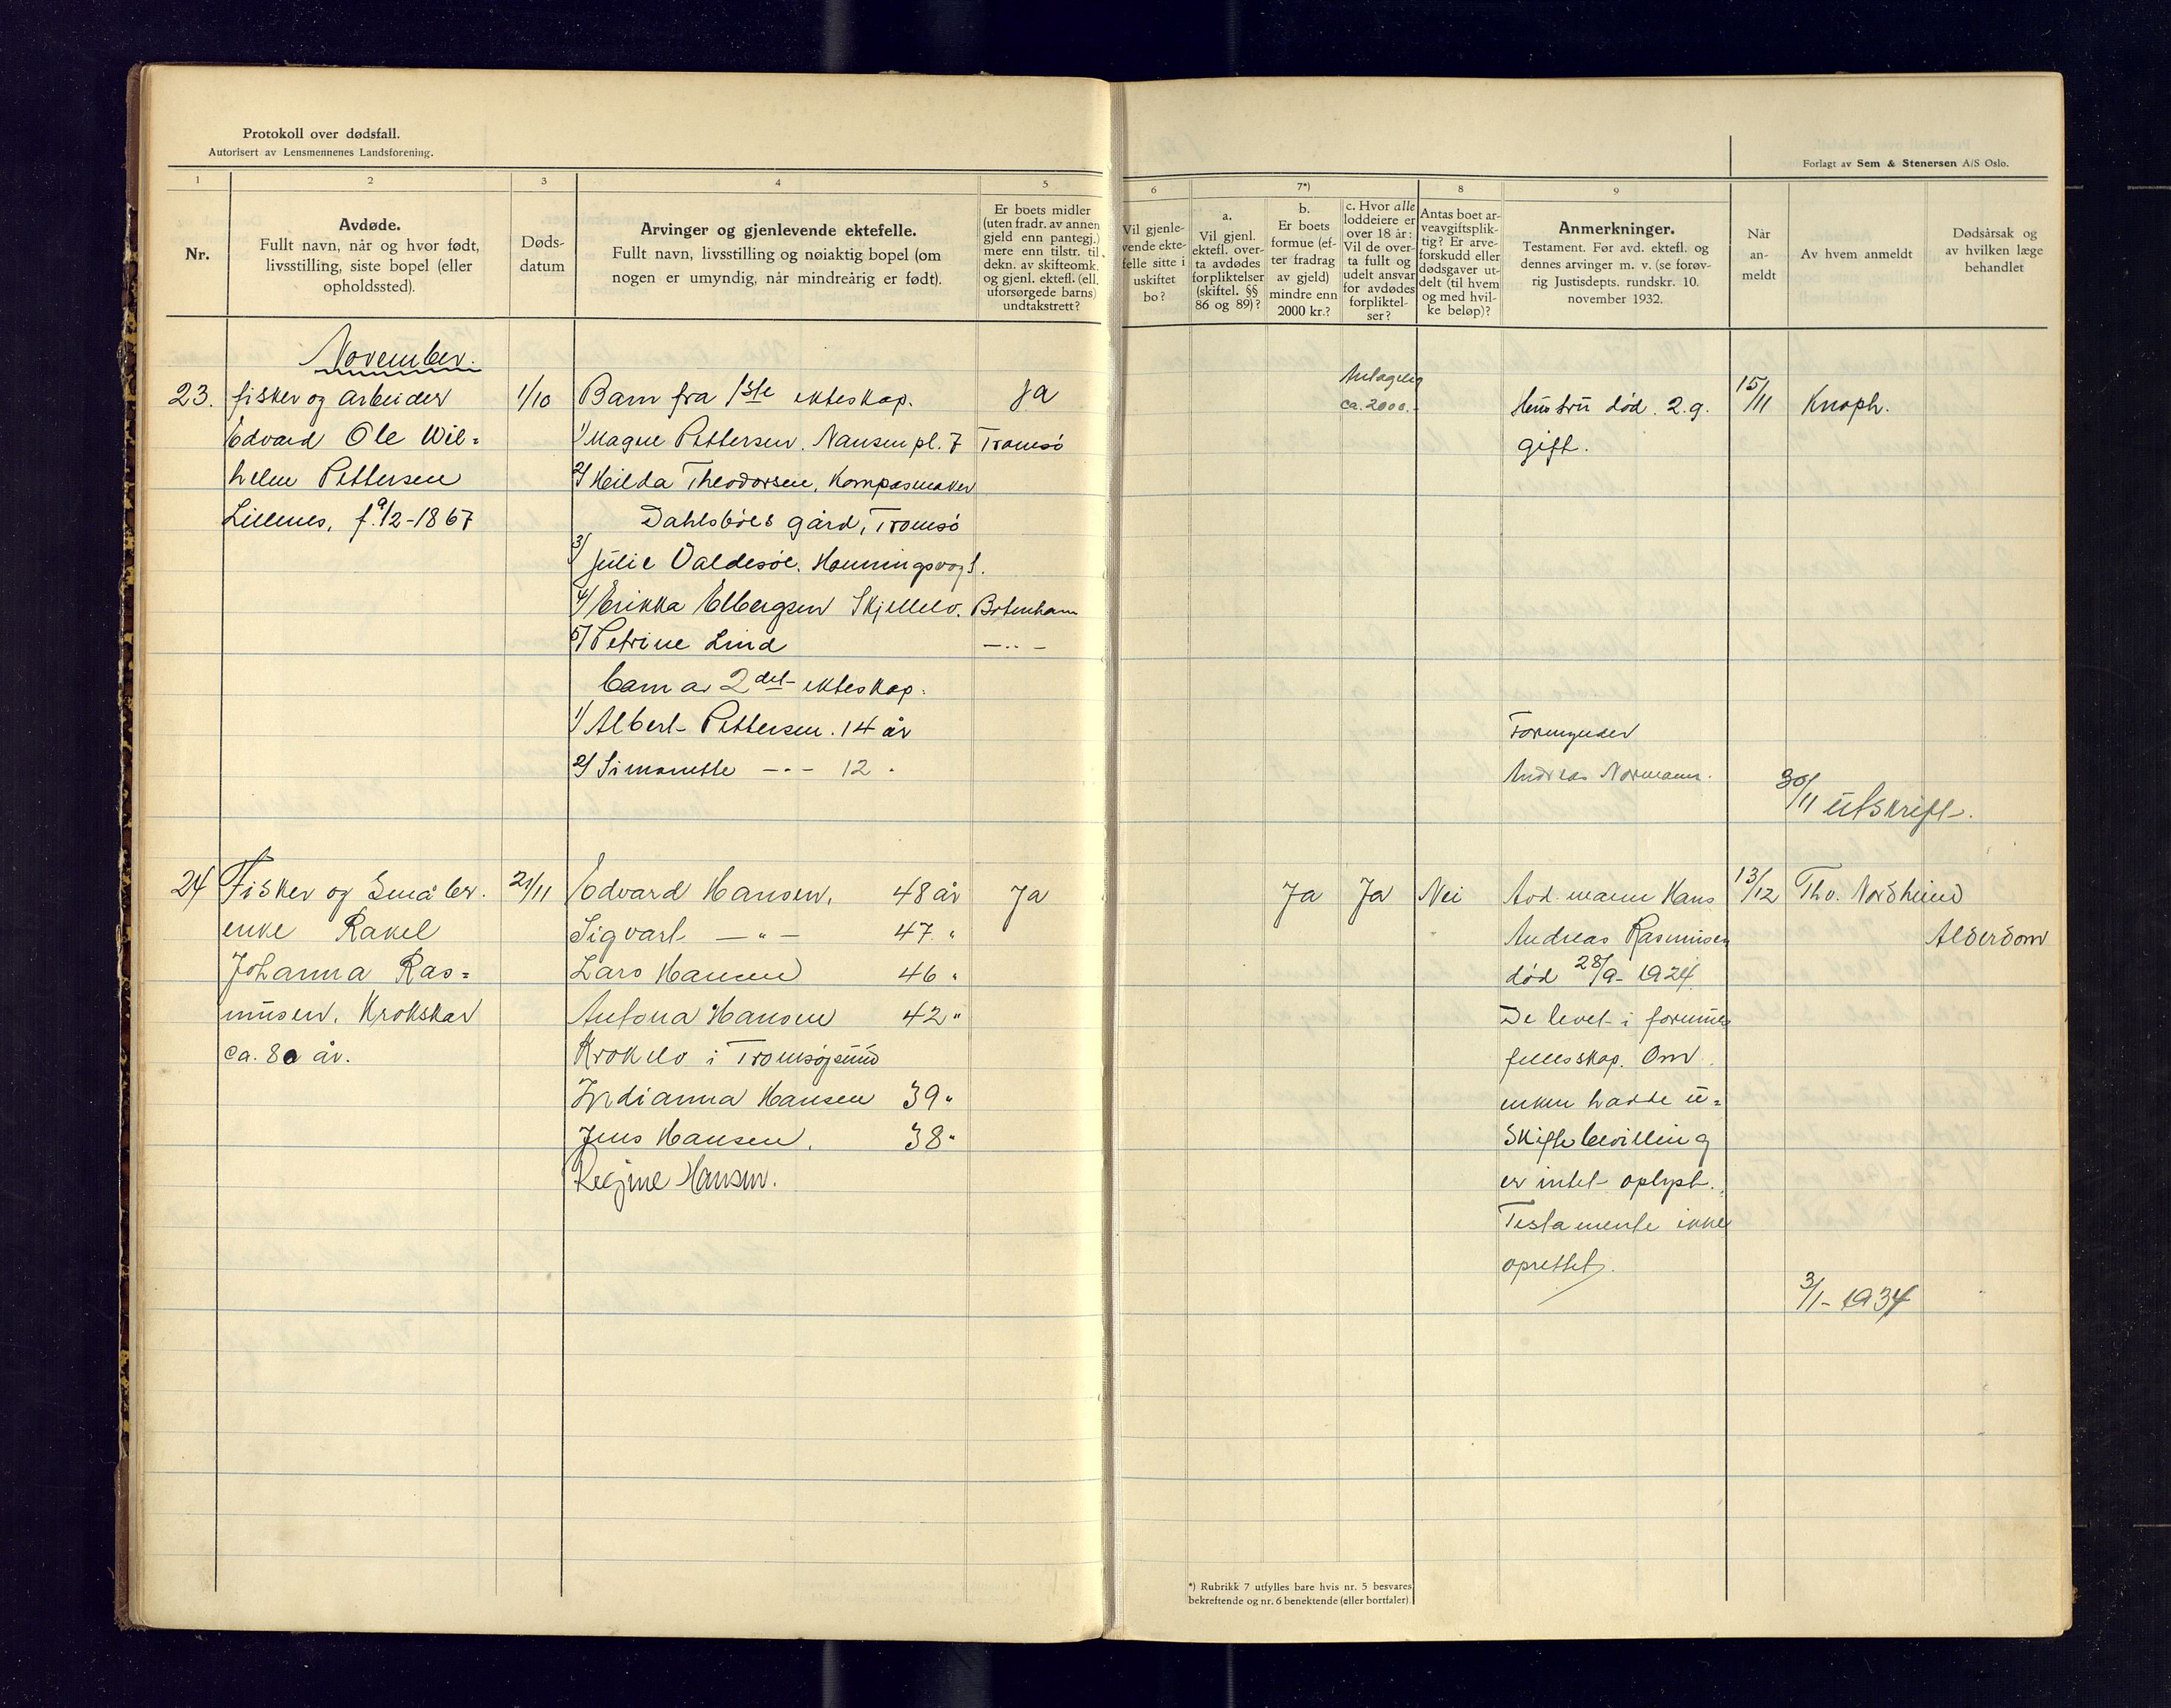 Protokoll over dødsfall.
Autorisert av Lensmennenes Landsforening.
Forlagt av Sem & Stenersen A/S Oslo.
1
2
3
4
5
6
7*)
8
9
Nr.
Avdøde.
Fullt navn, når og hvor født,
livsstilling, siste bopel (eller
opholdssted).
Døds-
datum
Arvinger og gjenlevende ektefelle.
Fullt navn, livsstilling og nøiaktig bopel (om
nogen er umyndig, når mindreårig er født).
Er boets midler
(uten fradr. av annen
gjeld enn pantegj.)
mere enn tilstr. til
dekn. av skifteomk.
og gjenl. ektefl. (ell.
uforsørgede barns)
undtakstrett?
Vil gjenle-
vende ekte-
felle sitte i
uskiftet
bo?
a.
Vil gjenl.
ektefl. over-
ta avdødes
forpliktelser
(skiftel. §§
86 og 89)?
b.
Er boets
formue (ef-
ter fradrag
av gjeld)
mindre enn
2000 kr.?
c. Hvor alle
loddeiere er
over 18 år:
Vil de over-
ta fullt og
udelt ansvar
for avdødes
forpliktel-
ser?
Antas boet ar-
veavgiftsplik-
tig? Er arve-
forskudd eller
dødsgaver ut-
delt (til hvem
og med hvil-
ke beløp)?
Anmerkninger.
Testament. Før avd. ektefl. og
dennes arvinger m. v. (se forøv-
rig Justisdepts. rundskr. 10.
november 1932.
Når
an-
meldt
Av hvem anmeldt
Dødsårsak og
av hvilken læge
behandlet
November.
23.
fisker og arbeider
Edvard Ole Wil=
helm Pettersen
Lillenes, f. 9/2-1867
1/10
Barn fra 1ste ekteskap.
1/ Magne Pettersen. Nansen pl. 7 Tromsø
2/ Heilda Theodorsen, Kompasmaker
Dahlsbøes gård, Tromsø
3/ Julie Valdesøe. Honningsvog
4/ Erikka Elbergsen Skjellelv. Botenhamn
5/ Petrine Lind —..—
barn av 2det ekteskap.
1/ Albert Pettersen. 14 år
2/ Simonette —"— 12 "
Ja
Antagelig
ca. 2000.-
Hustru død. 2. g.
gift.
Formynder
Andreas Normann.
15/11
Knoph.
30/11 utskrift.
24
Fisker og Småbr.
enke Rakel
Johanna Ras=
musen. Krokskar
ca. 80 år.
21/11
Edvard Hansen, 48 år
Sigvart —"— 47 "
Lars Hansen 46 "
Antona Hansen 42 "
Krokelv i Tromsøysund
Indianna Hansen 39 "
Jens Hansen. 38 "
Regine Hansen.
Ja
Ja
Ja
Nei
Avd. mann Hans
Andreas Rasmusen
død 28/9-1924.
De levet i formues
fellesskap. Om
enken hadde u=
skiftebevilling
er intet oplyst.
Testamente ikke
oprettet.
13/12
Th. Nordheim
Alderdom
3/1-1934
*) Rubrikk 7 utfylles bare hvis nr. 5 besvares
bekreftende og nr. 6 benektende (eller bortfaler).